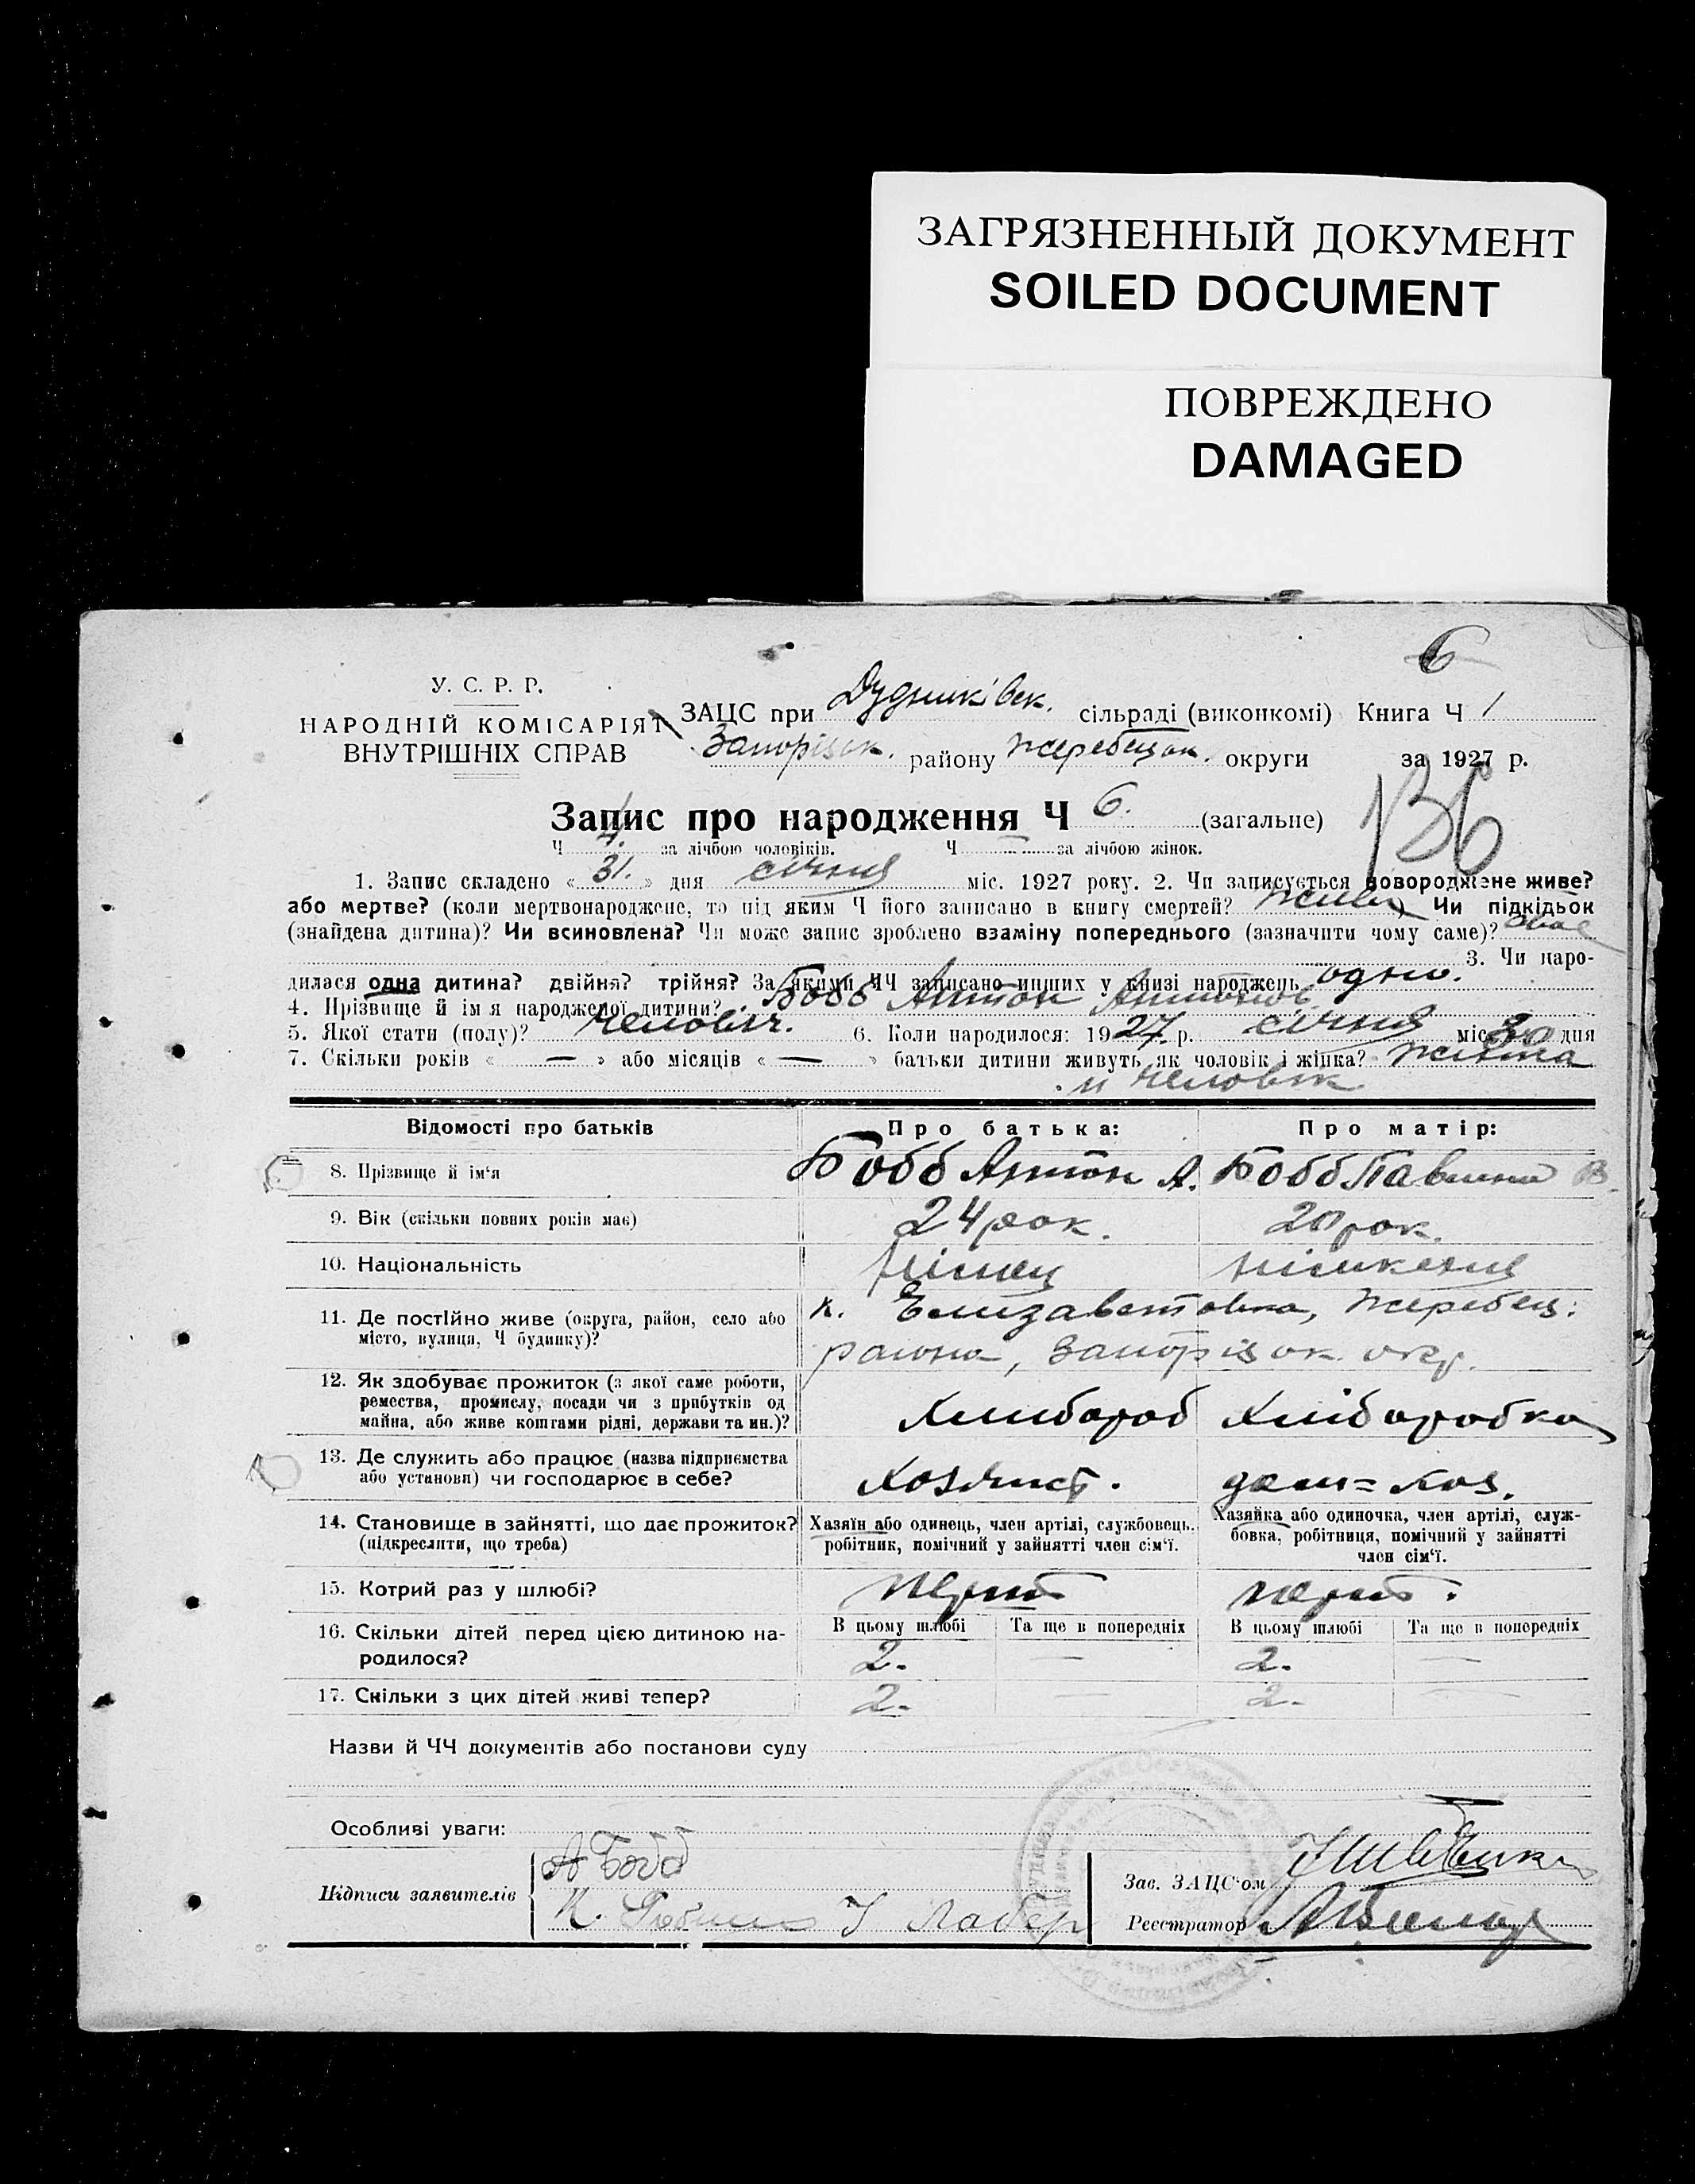 ЗАГРЯЗНЕННЫЙ ДОКУМЕНТ
SOILED DOCUMENT
ПОВРЕЖДЕНО
DAMAGED
6
У. С. Р. Р.
НАРОДНІЙ КОМІСАРІЯТ
ВНУТРІШНІХ СПРАВ
ЗАЦС при Дудників ск. сільраді (виконкомі) Книга Ч 1
Запорізск. району Жеребецк. округи за 1927 р.
136
Запис про народження Ч 6. (загальне)
Ч 4. за лічбою чоловіків. Ч — за лічбою жінок.
1. Запис складено « 31. » дня січня міс. 1927 року. 2. Чи записується новороджене живе?
або мертве? (коли мертвонароджене, то під яким Ч його записано в книгу смертей? живе) Чи підкідьок
(знайдена дитина)? Чи всиновлена? Чи може запис зроблено взаміну попереднього (зазначити чому саме)?
3. Чи наро-
дилася одна дитина? двійня? трійня? За якими ЧЧ записано инших у книзі народжень одно.
4. Прізвище й ім'я народженої дитини? Бобб Антон Антонов
5. Якої стати (полу)? человіч. 6. Коли народилося: 1927 р. січня міс. 30 дня
7. Скільки років « — » або місяців « — » батьки дитини живуть як чоловік і жінка? жінка
и человік
Відомості про батьків Про батька: Про матір:
8. Прізвище й ім'я Бобб Антон А. Бобб Павлина В.
9. Вік (скільки повних років має) 24 рок. 20 рок.
10. Національність Німец німкеня
11. Де постійно живе (округа, район, село або к. Елизаветовка, Жеребец.
місто, вулиця, Ч будинку)? района, Запорізск. окр.
12. Як здобуває прожиток (з якої саме роботи,
ремества, промислу, посади чи з прибутків од
майна, або живе коштами рідні, держави та ин.)? Хлибороб Хліборобка
13. Де служить або працює (назва підприємства
або установи) чи господарює в себе? хозяист. дом=хоз.
14. Становище в зайнятті, що дає прожиток? Хазяїн або одинець, член артілі, службовець, Хазяйка або одиночка, член артілі, служ-
(підкреслити, що треба) робітник, помічний у зайнятті член сім'ї. бовка, робітниця, помічний у зайнятті
член сім'ї.
15. Котрий раз у шлюбі? перши перши.
16. Скільки дітей перед цією дитиною на- В цьому шлюбі Та ще в попередніх В цьому шлюбі Та ще в попередніх
родилося? 2. — 2. —
17. Скільки з цих дітей живі тепер? 2. — 2. —
Назви й ЧЧ документів або постанови суду
Особливі уваги:
Підписи заявителів А Бобб
Зав. ЗАЦС'ом
Реєстратор